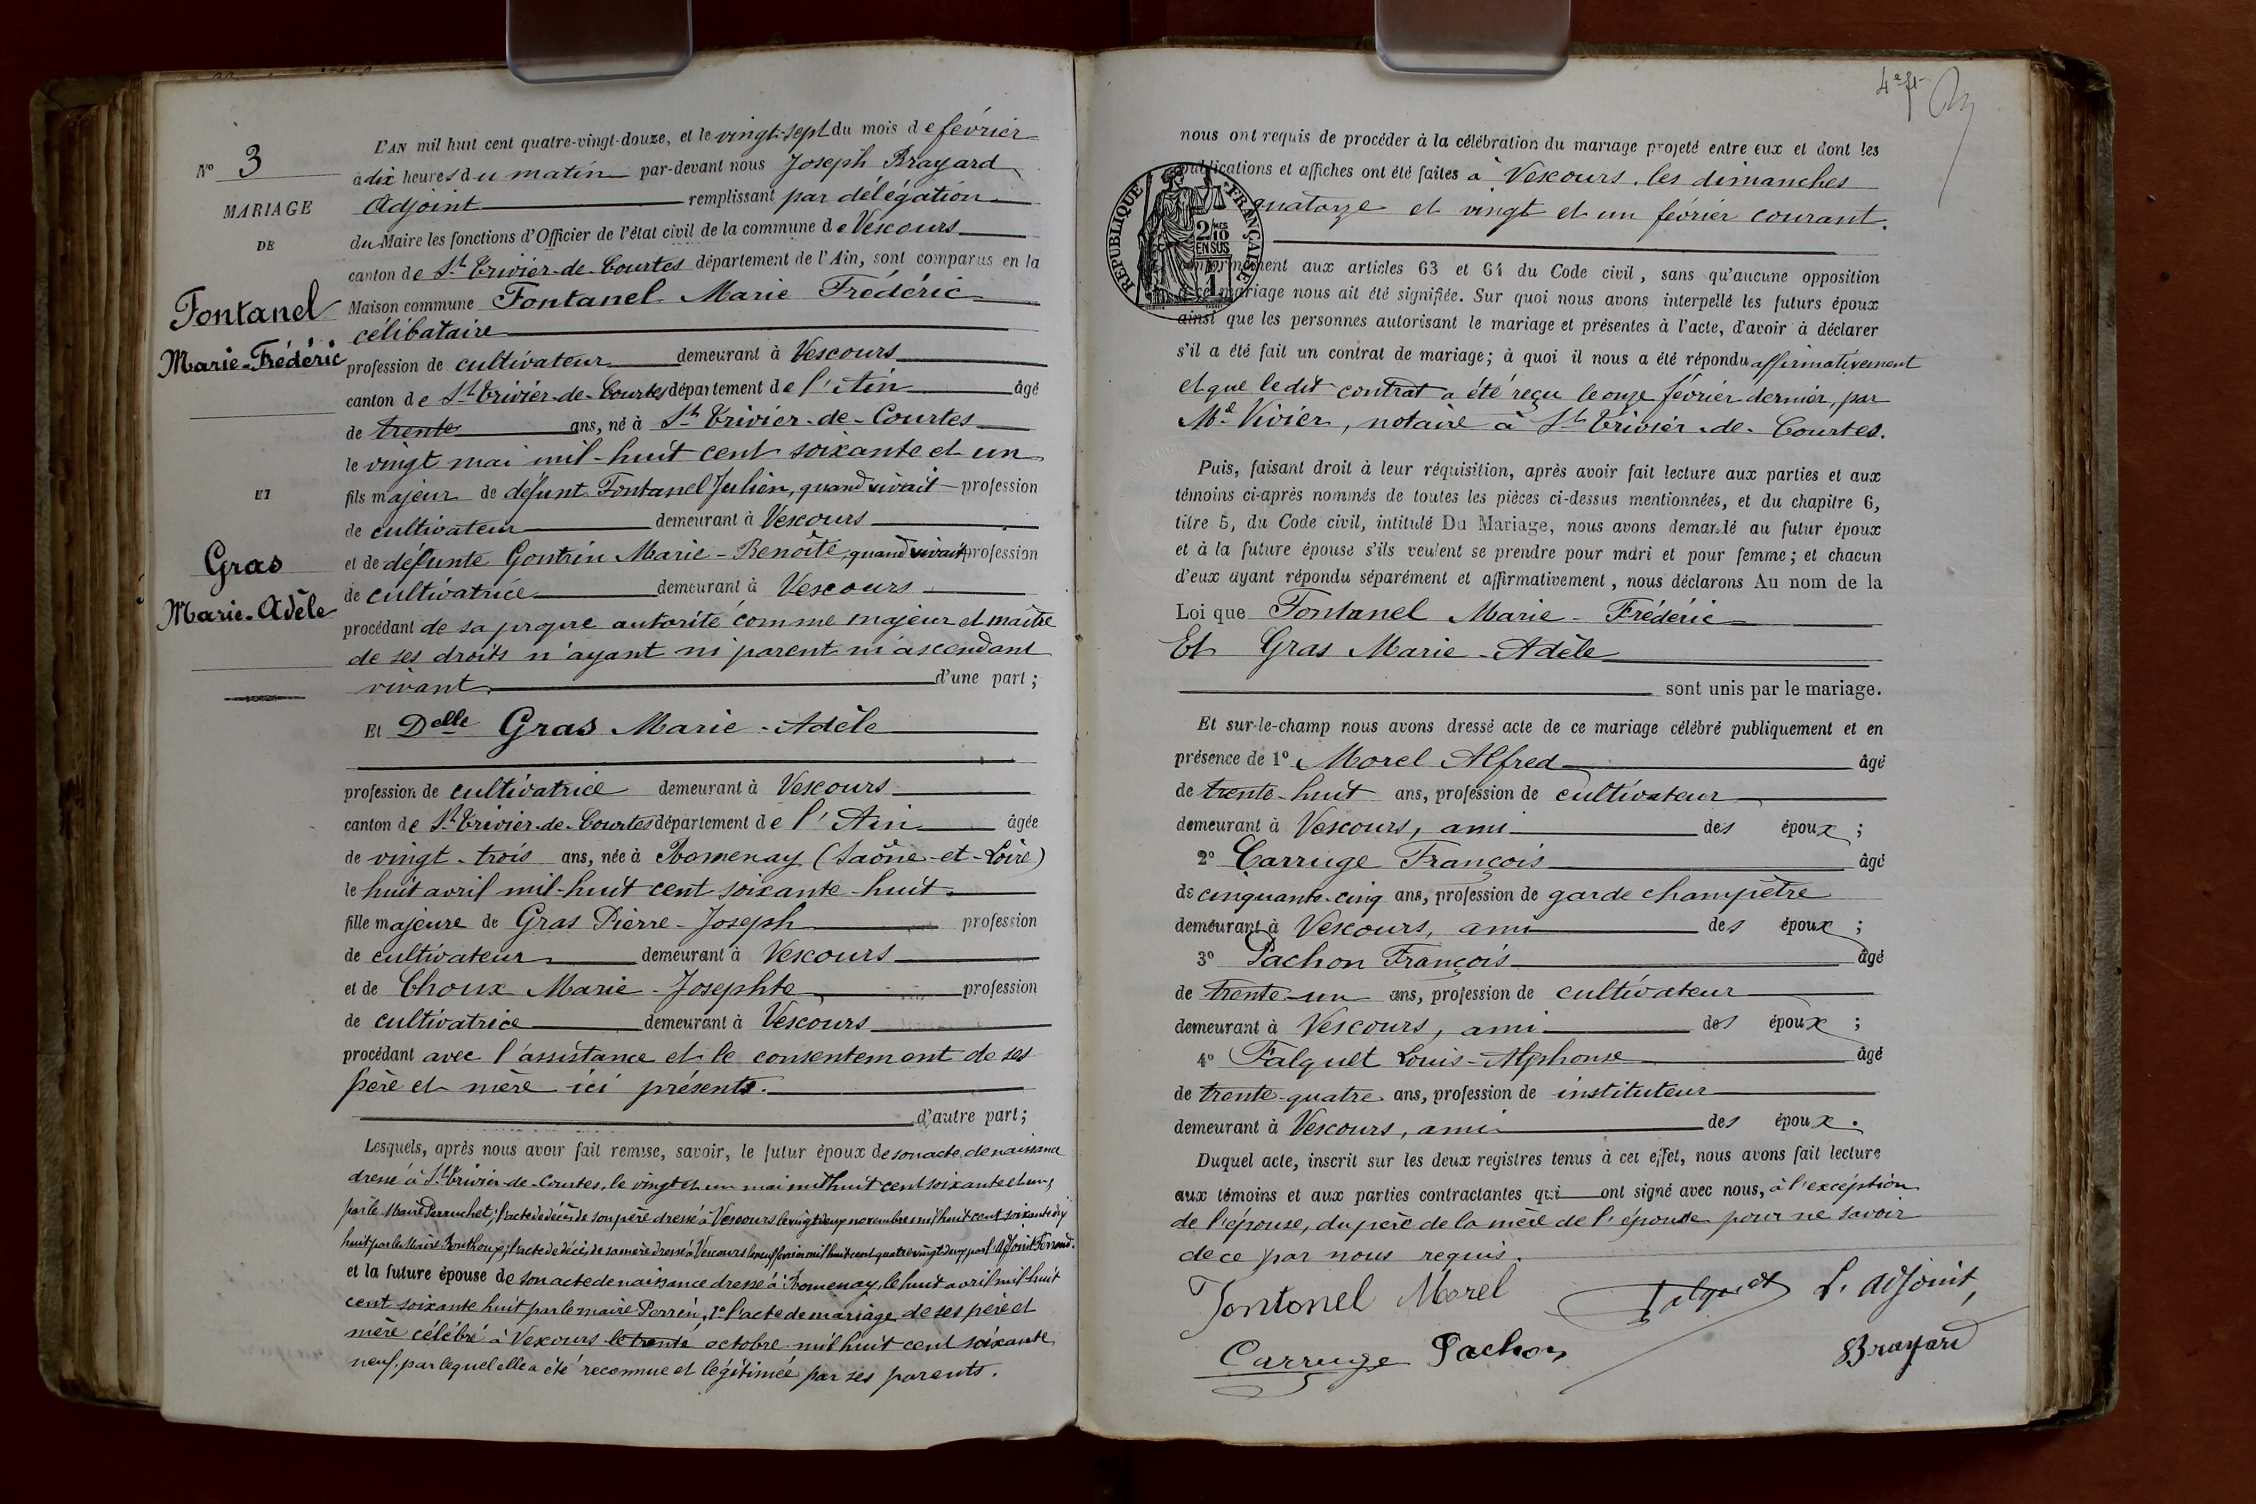 N° 3
MARIAGE
DE
Fontanel
Marie-Frédéric
ET
Gras
Marie-Adèle
L'AN mil huit cent quatre-vingt-douze, et le vingt-sept du mois de février
à dix heures du matin par-devant nous Joseph Brayard
Adjoint remplissant par délégation
du Maire les fonctions d'Officier de l'état civil de la commune de Vescours
canton de St Trivier-de-Courtes département de l'Ain, sont comparus en la
Maison commune Fontanel Marie Frédéric
célibataire
profession de cultivateur demeurant à Vescours
canton de St Trivier-de-Courtes département de l'Ain âgé
de trente ans, né à St Trivier-de-Courtes
le vingt mai mil-huit cent soixante et un
fils majeur de défunt Fontanel Julien, quand vivait profession
de cultivateur demeurant à Vescours
et de défunte Gontrin Marie-Benoîte, quand vivait profession
de cultivatrice demeurant à Vescours
procédant de sa propre autorité comme majeur et maître
de ses droits n'ayant ni parent ni ascendant
vivant d'une part ;
Et Delle Gras Marie-Adèle
profession de cultivatrice demeurant à Vescours
canton de St Trivier-de-Courtes département de l'Ain âgée
de vingt-trois ans, née à Romenay (Saône-et-Loire)
le huit avril mil-huit cent soixante-huit
fille majeure de Gras Pierre-Joseph profession
de cultivateur demeurant à Vescours
et de Choux Marie-Josephte profession
de cultivatrice demeurant à Vescours
procédant avec l'assistance et le consentement de ses
père et mère ici présents.
d'autre part ;
Lesquels, après nous avoir fait remise, savoir, le futur époux de son acte de naissance
dressé à St Trivier-de-Courtes, le vingt et un mai mil huit cent soixante et un,
par le Maire Perruchet; l'acte de décès de son père dressé à Vescours le vingt deux novembre mil huit cent soixante dix
huit par le Maire Bouthoux; l'acte de décès de sa mère dressé à Vescours le neuf février mil huit cent quatre vingt deux par l'Adjoint Ferrand.
et la future épouse de son acte de naissance dressé à Romenay, le huit avril mil-huit
cent soixante huit par le maire Perrin, 2° l'acte de mariage de ses père et
mère célébré à Vescours le trente octobre mil huit cent soixante
neuf, par lequel elle a été reconnue et légitimée par ses parents.
4e ft
nous ont requis de procéder à la célébration du mariage projeté entre eux et dont les
publications et affiches ont été faites à Vescours, les dimanches
quatorze et vingt et un février courant.
RÉPUBLIQUE FRANÇAISE
2/10 EN SUS
conformément aux articles 63 et 64 du Code civil, sans qu'aucune opposition
à ce mariage nous ait été signifiée. Sur quoi nous avons interpellé les futurs époux
ainsi que les personnes autorisant le mariage et présentes à l'acte, d'avoir à déclarer
s'il a été fait un contrat de mariage; à quoi il nous a été répondu affirmativement
et que le dit contrat a été reçu le onze février dernier, par
Me Vivier, notaire à St Trivier-de-Courtes.
Puis, faisant droit à leur réquisition, après avoir fait lecture aux parties et aux
témoins ci-après nommés de toutes les pièces ci-dessus mentionnées, et du chapitre 6,
titre 5, du Code civil, intitulé Du Mariage, nous avons demandé au futur époux
et à la future épouse s'ils veulent se prendre pour mari et pour femme; et chacun
d'eux ayant répondu séparément et affirmativement, nous déclarons Au nom de la
Loi que Fontanel Marie-Frédéric
Et Gras Marie-Adèle
sont unis par le mariage.
Et sur-le-champ nous avons dressé acte de ce mariage célébré publiquement et en
présence de 1° Morel Alfred âgé
de trente-huit ans, profession de cultivateur
demeurant à Vescours, ami des époux ;
2° Carruge François âgé
de cinquante-cinq ans, profession de garde champêtre
demeurant à Vescours, ami des époux ;
3° Pachon François âgé
de trente-un ans, profession de cultivateur
demeurant à Vescours, ami des époux ;
4° Falquet Louis-Alphonse âgé
de trente-quatre ans, profession de instituteur
demeurant à Vescours, ami des époux.
Duquel acte, inscrit sur les deux registres tenus à cet effet, nous avons fait lecture
aux témoins et aux parties contractantes qui ont signé avec nous, à l'exception
de l'épouse, du père de la mère de l'épouse pour ne savoir
de ce par nous requis.
Fontanel Morel Falquet L'adjoint,
Carruge Pachon Brayard